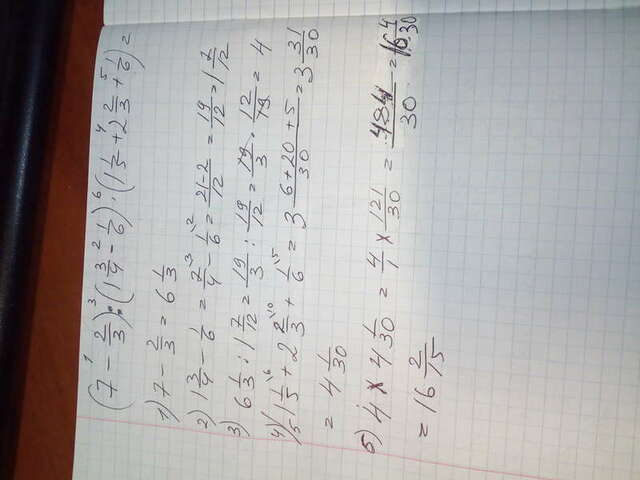 (7 - 2/3) : (1 3/4 - 1/6) · (1 1/5 + 2 2/3 + 1/6) =
1) 7 - 2/3 = 6 1/3
2) 1 3/4 - 1/6 = 7/4 - 1/6 = 21-2/12 = 19/12 = 1 7/12
3) 6 1/3 : 1 7/12 = 19/3 : 19/12 = 19/3 · 12/19 = 4
4) 1 1/5 + 2 2/3 + 1/6 = 3 6+20+5/30 = 3 31/30
= 4 1/30
5) 4 × 4 1/30 = 4/1 × 121/30 = 484/30 = 16 4/30
= 16 2/15